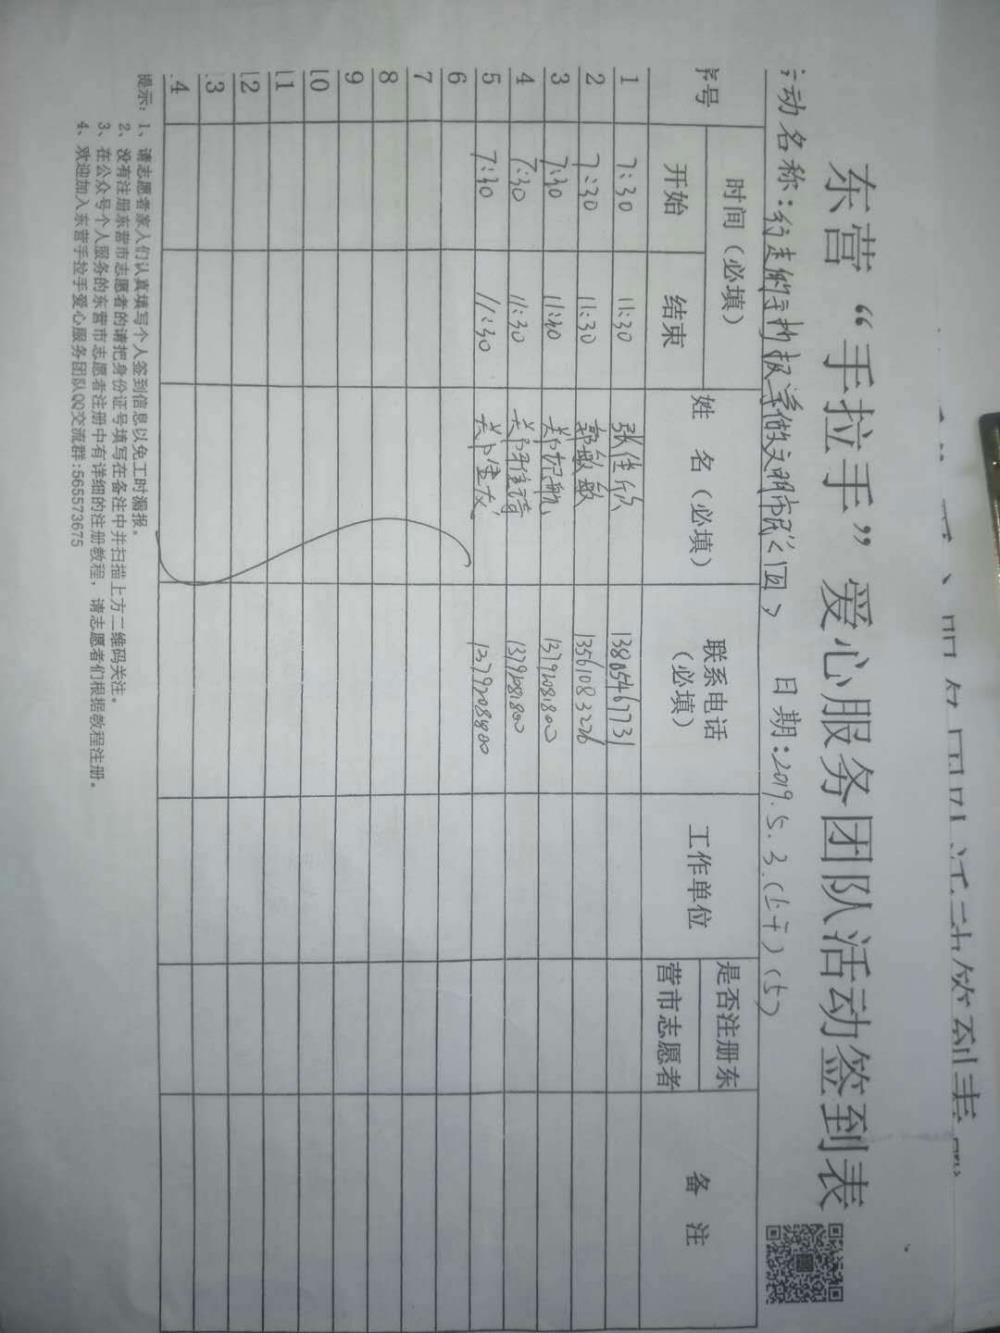 东营“手拉手”爱心服务团队活动签到表
动名称:行走的手抄报 争做文明市民<四> 日期:2019.5.3.(上午)(5)
序号 时间(必填) 姓 名(必填) 联系电话(必填) 工作单位 是否注册东营市志愿者 备 注
开始 结束
1 7:30 11:30 张佳欣 13805467731
2 7:30 11:30 郭敏敏 13561083226
3 7:30 11:30 13792081800
4 7:30 11:30 13792081800
5 7:30 11:30
6
7
8
9
10
11
12
.3
.4
提示:1、请志愿者家人们认真填写个人签到信息以免工时漏报。
2、没有注册东营市志愿者的请把身份证号填写在备注中并扫描上方二维码关注。
3、在公众号个人服务的东营市志愿者注册中有详细的注册教程,请志愿者们根据教程注册。
4、欢迎加入东营手拉手爱心服务团队QQ交流群:565573675